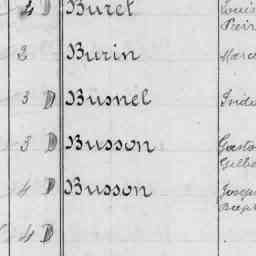 4 D Buret Louis
Pierr
2 Burin Marc
3 D Busnel
3 D Busson Gasto
Gilbe
4 D Busson Joseph
Bapt
4 D